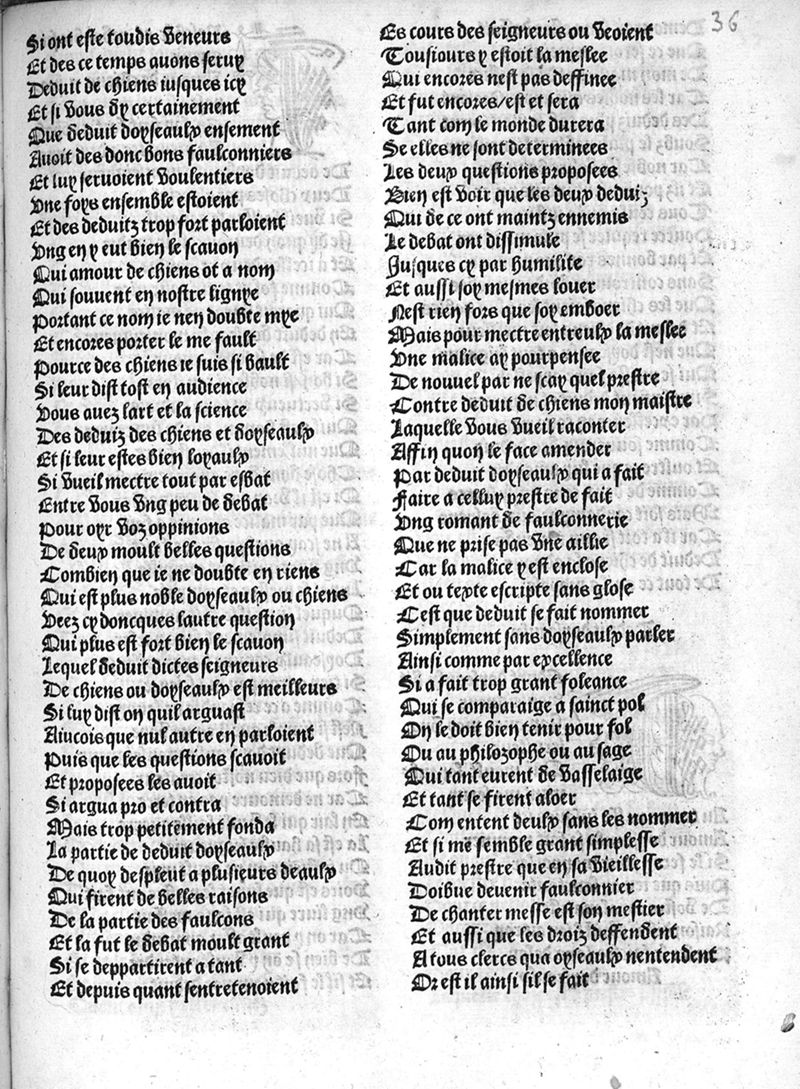 36
Si ont este toudis veneurs
Et des ce temps auons seruy
Deduit de chiens iusques icy
Et si vous dy certainement
Que deduit doyseaulx ensement
Auoit des donc bons faulconniers
Et luy seruoient voulentiers
Vne foys ensemble estoient
Et des deduitz trop fort parloient
Vng en y eut bien le scauon
Qui amour de chiens ot a nom
Qui souuent en nostre lignye
Portant ce nom ie nen doubte mye
Et encores porter le me fault
Pource des chiens ie suis si bault
Si leur dist tost en audience
Vous auez lart et la science
Des deduiz des chiens et doyseaulx
Et si leur estes bien loyaulx
Si vueil mectre tout par esbat
Entre vous vng peu de debat
Pour oyr voz oppinions
De deux moult belles questions
Combien que ie ne doubte en riens
Qui est plus noble doyseaulx ou chiens
Veez cy doncques lautre question
Qui plus est fort bien le scauon
Lequel deduit dictes seigneurs
De chiens ou doyseaulx est meilleurs
Si luy dist on quil arguast
Aincois que nul autre en parloient
Puis que les questions scauoit
Et proposees les auoit
Si argua pro et contra
Mais trop petitement fonda
La partie de deduit doyseaulx
De quoy despleut a plusieurs deaulx
Qui firent de belles raisons
De la partie des faulcons
Et la fut le debat moult grant
Si se deppartirent a tant
Et depuis quant sentretenoient
Es cours des seigneurs ou veoient
Tousiours y estoit la meslee
Qui encores nest pas deffinee
Et fut encores/est et sera
Tant com le monde durera
Se elles ne sont determinees
Les deux questions proposees
Bien est voir que les deux deduiz
Qui de ce ont maintz ennemis
Le debat ont dissimule
Jusques cy par humilite
Et aussi soy mesmes louer
Nest rien fors que soy emboer
Mais pour mectre entreulx la meslee
Vne malice ay pourpensee
De nouuel par ne scay quel prestre
Contre deduit de chiens mon maistre
Laquelle vous vueil raconter
Affin quon le face amender
Par deduit doyseaulx qui a fait
Faire a celluy prestre de fait
Vng romant de faulconnerie
Que ne prise pas vne aillie
Car la malice y est enclose
Et ou texte escripte sans glose
Cest que deduit se fait nommer
Simplement sans doyseaulx parler
Ainsi comme par excellence
Si a fait trop grant foleance
Qui se comparaige a sainct pol
On le doit bien tenir pour fol
Ou au philozophe ou au sage
Qui tant eurent de vasselaige
Et tant se firent aloer
Com entent deulx sans les nommer
Et si me semble grant simplesse
Audit prestre que en sa vieillesse
Doibue deuenir faulconnier
De chanter messe est son mestier
Et aussi que les droiz deffendent
A tous clercs qua oyseaulx nentendent
Or est il ainsi sil se fait